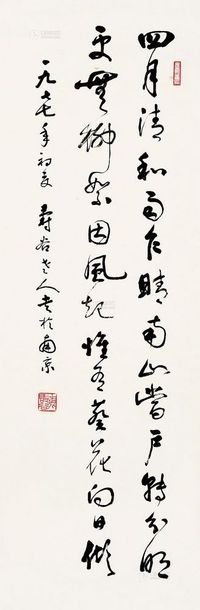 四月清和雨乍晴南山當戶轉分明
更無柳絮因風起惟有葵花向日傾
一九七七年初夏 尋谷老人書於南京